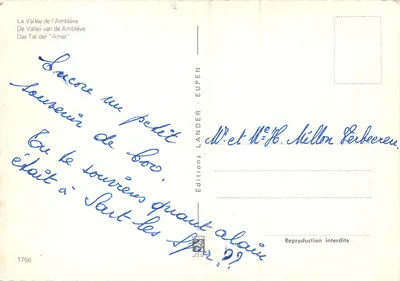 La Vallée de l'Amblève
De Vallei van de Amblève
Das Tal der "Amel"
Encore un petit
souvenir de Coo.
Tu te souviens quant alain
était à Sart les Spa ??
Editions LANDER - EUPEN
Mr. et Me. H. Millon Verbeeren
Reproduction interdite
1756